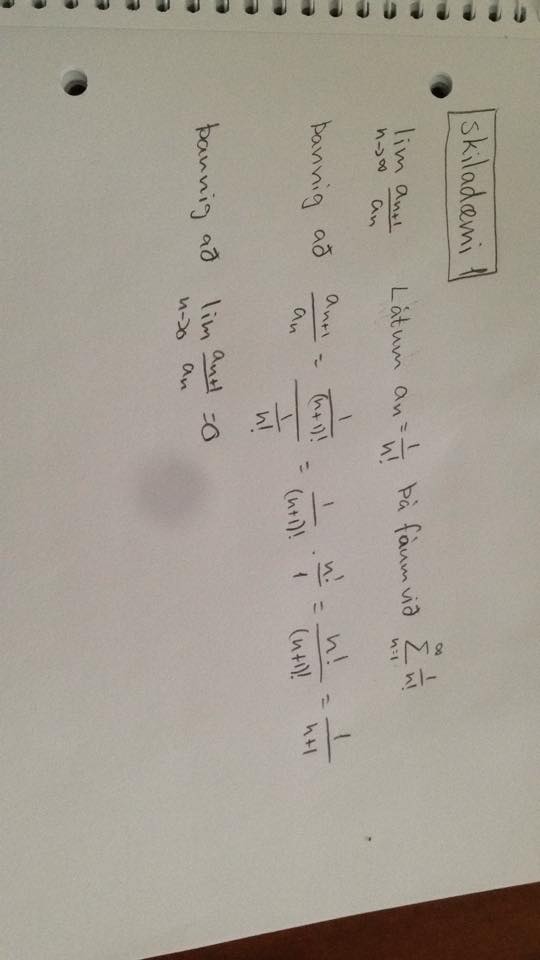 Skiladæmi 1
lim n→∞ an+1/an Látum an = 1/n! þá fáum við ∞Σn=1 1/n!
þannig að an+1/an = (1/(n+1)!)/(1/n!) = 1/(n+1)! · n!/1 = n!/(n+1)! = 1/n+1
þannig að lim n→∞ an+1/an = 0